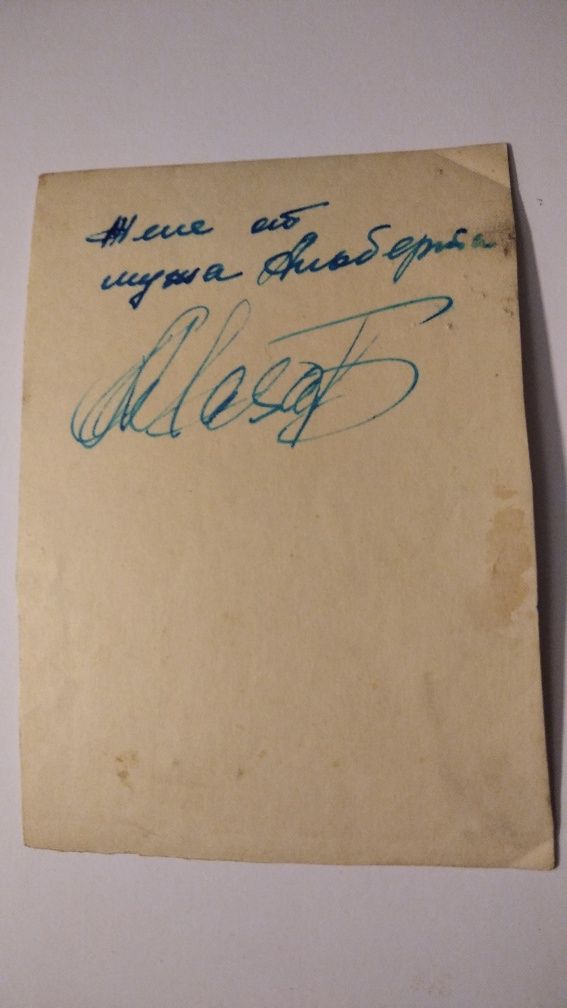 Жене от
мужа Альберта